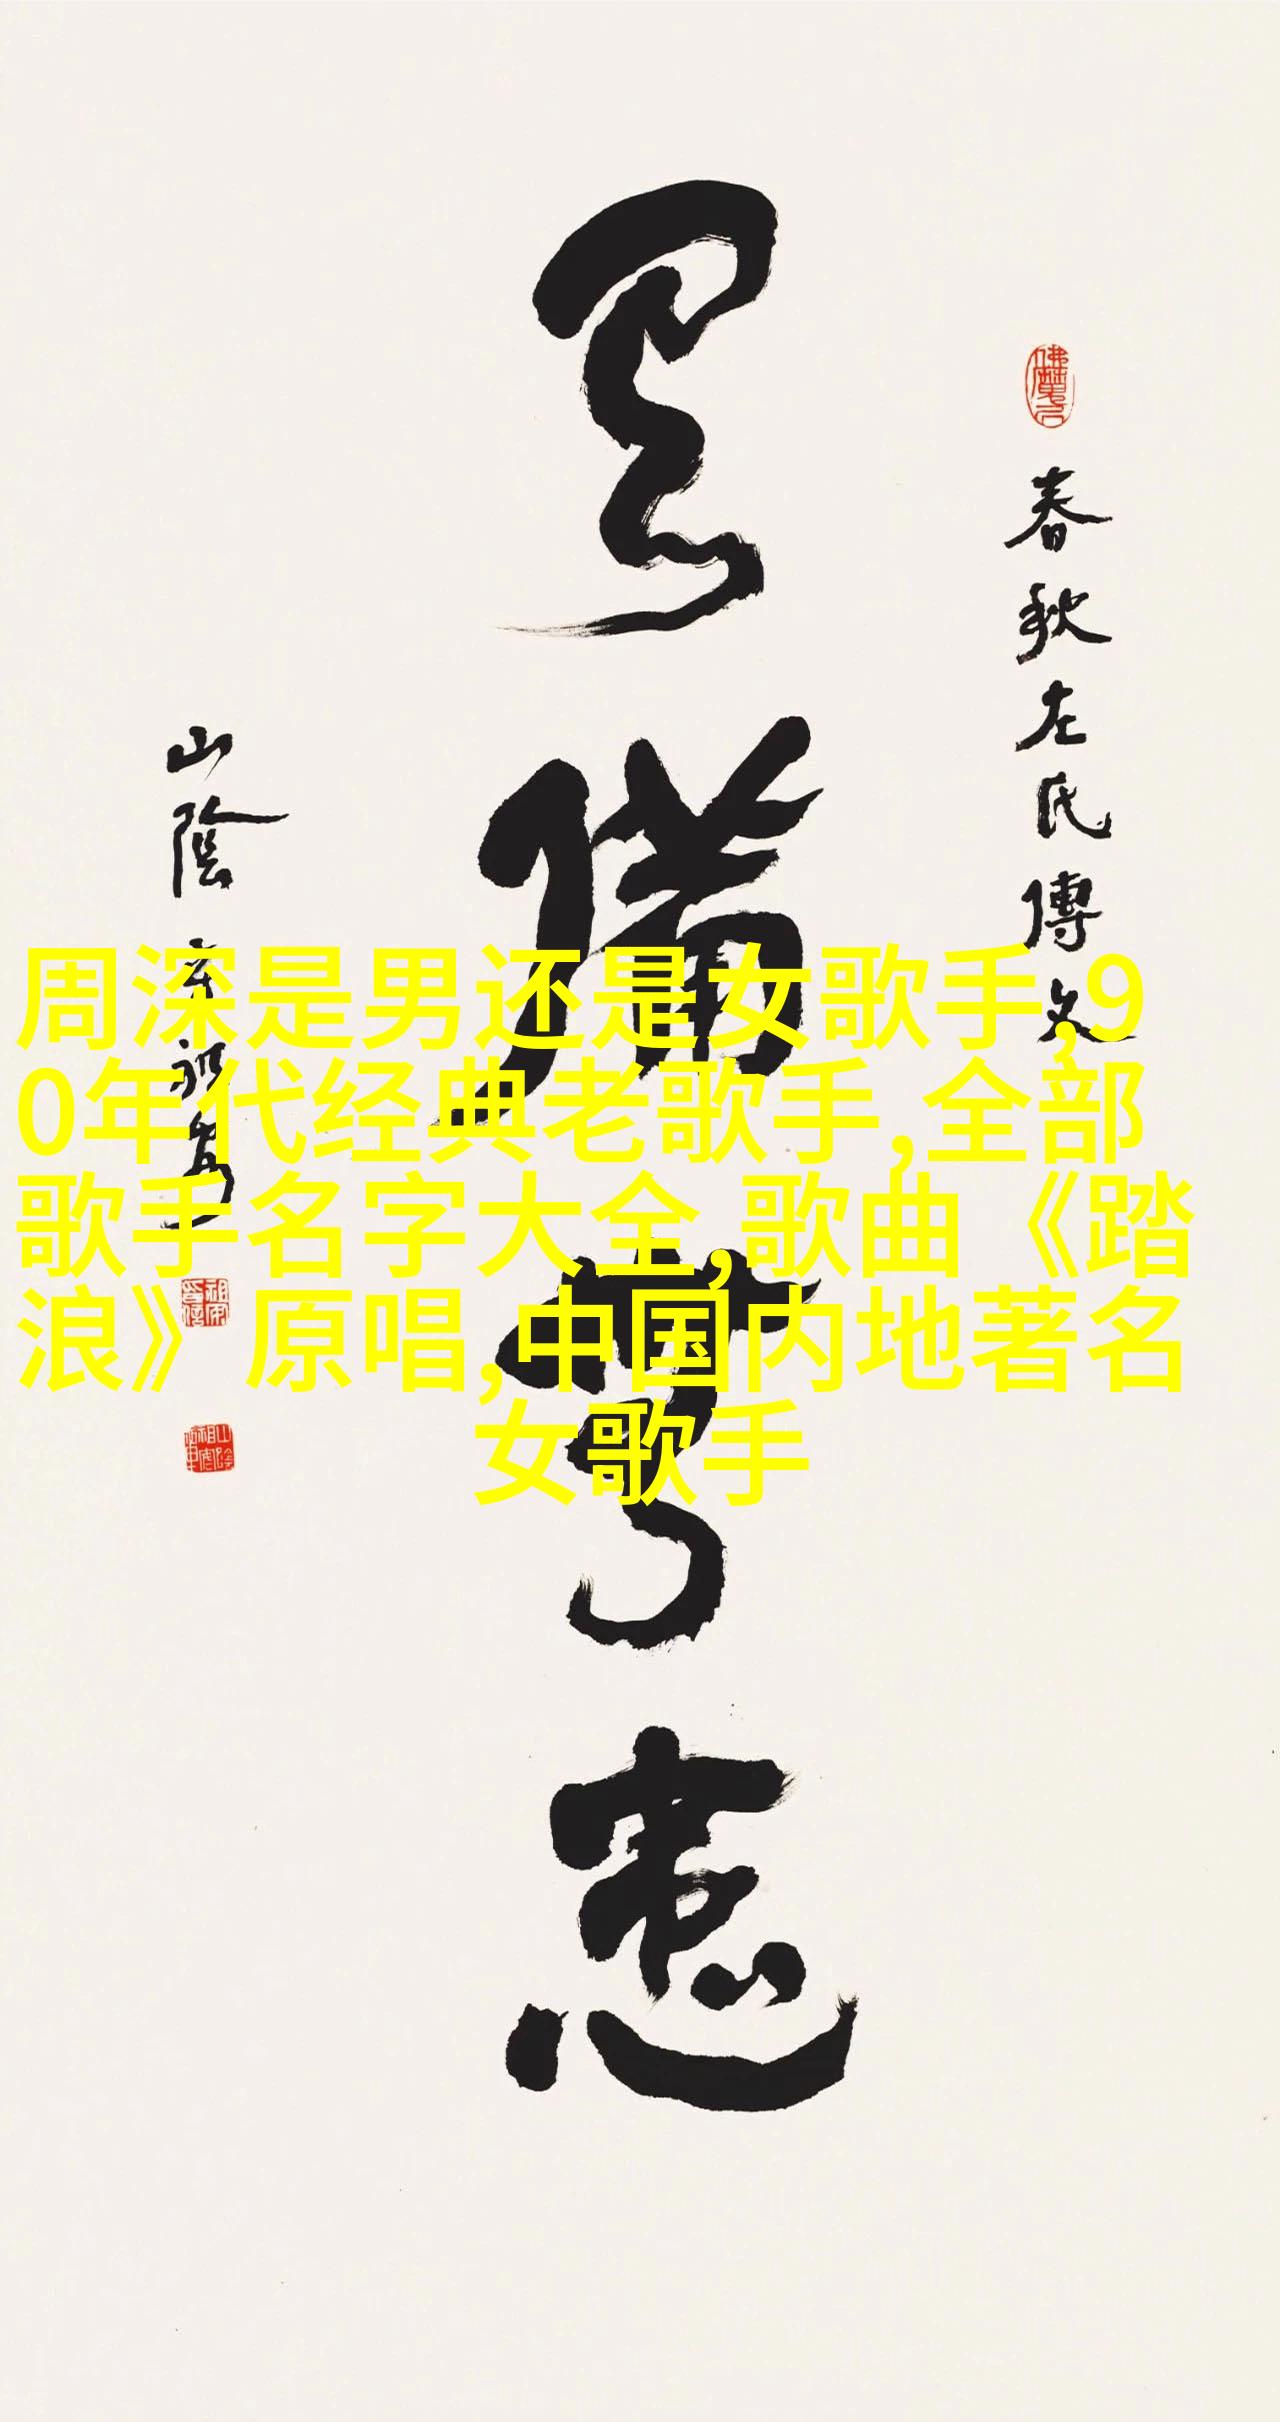 有備無患
春秋左氏傳文
山陰
周深是男还是女歌手,9
0年代经典老歌手,全部
歌手名字大全,歌曲《踏
浪》原唱,中国内地著名
女歌手